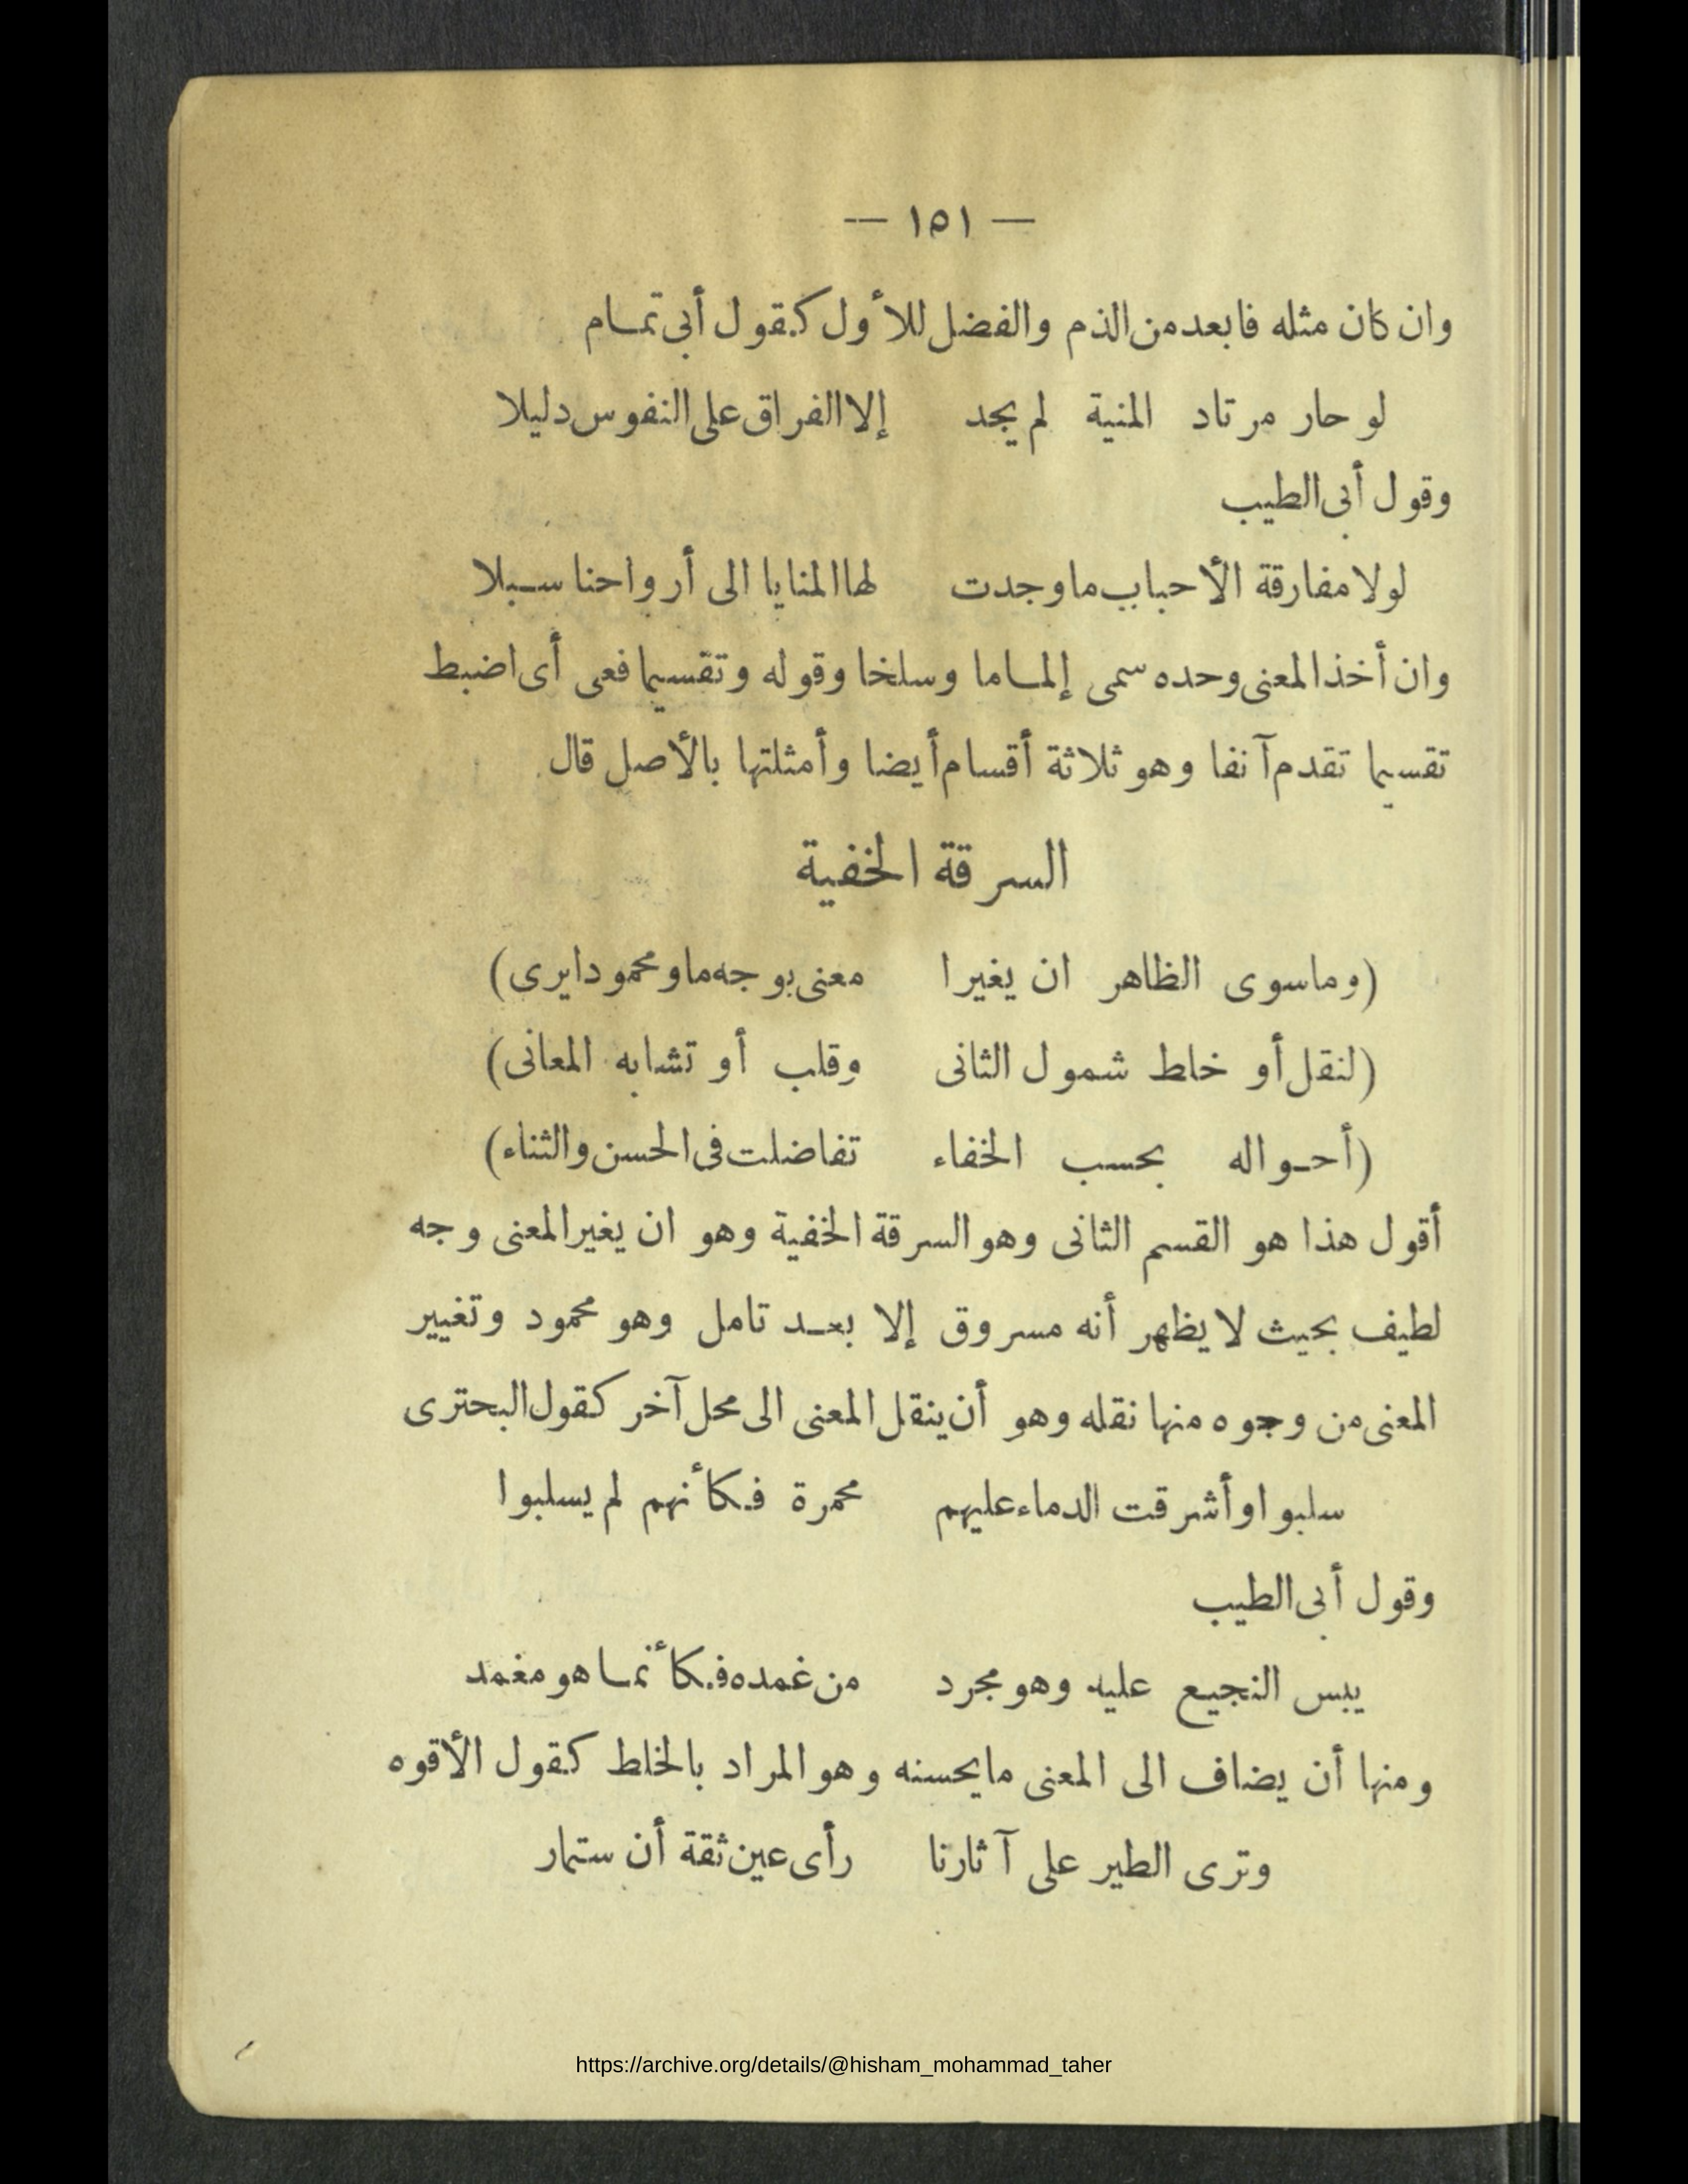 — ١٥١ —
وان كان مثله فابعد من الذم والفضل للأول كقول أبى تمام
لو حار مرتاد المنية لم يجد إلا الفراق على النفوس دليلا
وقول أبى الطيب
لولا مفارقة الأحباب ما وجدت لها المنايا الى أرواحنا سبلا
وان أخذ المعنى وحده سمى إلماما وسلخا وقوله وتقسيما فعى أى اضبط
تقسيما تقدم آنفا وهو ثلاثة أقسام أيضا وأمثلتها بالأصل قال
السرقة الخفية
(وما سوى الظاهر ان يغيرا معنى بوجه ما ومحمودا يرى)
(لنقل أو خلط شمول الثانى وقلب أو تشابه المعانى)
(أحواله بحسب الخفاء تفاضلت فى الحسن والثناء)
أقول هذا هو القسم الثانى وهو السرقة الخفية وهو ان يغير المعنى وجه
لطيف بحيث لا يظهر أنه مسروق إلا بعد تامل وهو محمود وتغيير
المعنى من وجوه منها نقله وهو أن ينقل المعنى الى محل آخر كقول البحترى
سلبوا وأشرقت الدماء عليهم محمرة فكأنهم لم يسلبوا
وقول أبى الطيب
يبس النجيع عليه وهو مجرد من غمده فكأنما هو مغمد
ومنها أن يضاف الى المعنى ما يحسنه وهو المراد بالخلط كقول الأقوه
وترى الطير على آثارنا رأى عين ثقة أن ستمار
https://archive.org/details/@hisham_mohammad_taher